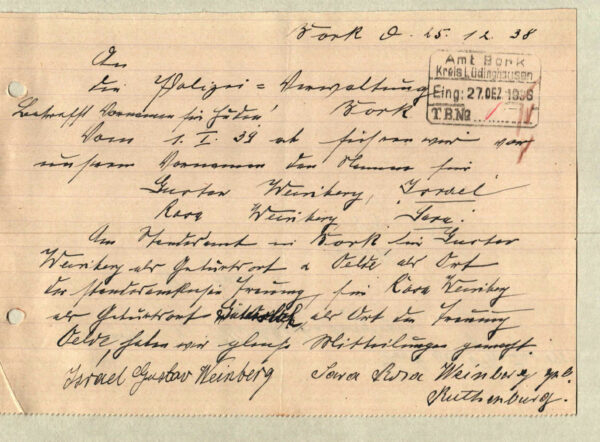 Bork d. 25.12.38
An
die Polizei-Verwaltung
Bork
Amt Bork
Kreis Lüdinghausen
Eing: 27.DEZ.1938
T.B.No
Betrefft Vornamen für Juden!
Vom 1.I.39 ab führen wir vor
unserm Vornamen den Namen für
Gustav Weinberg, Israel
Rosa Weinberg Sara.
Am Standesamt in Bork, für Gustav
Weinberg als Geburtsort u Oelde als Ort
der standesamtlichen Trauung, für Rosa Weinberg
als Geburtsort, als Ort der Trauung
Oelde, haben wir gleiche Mitteilungen gemacht.
Israel Gustav Weinberg Sara Rosa Weinberg geb.
Ruthenburg.